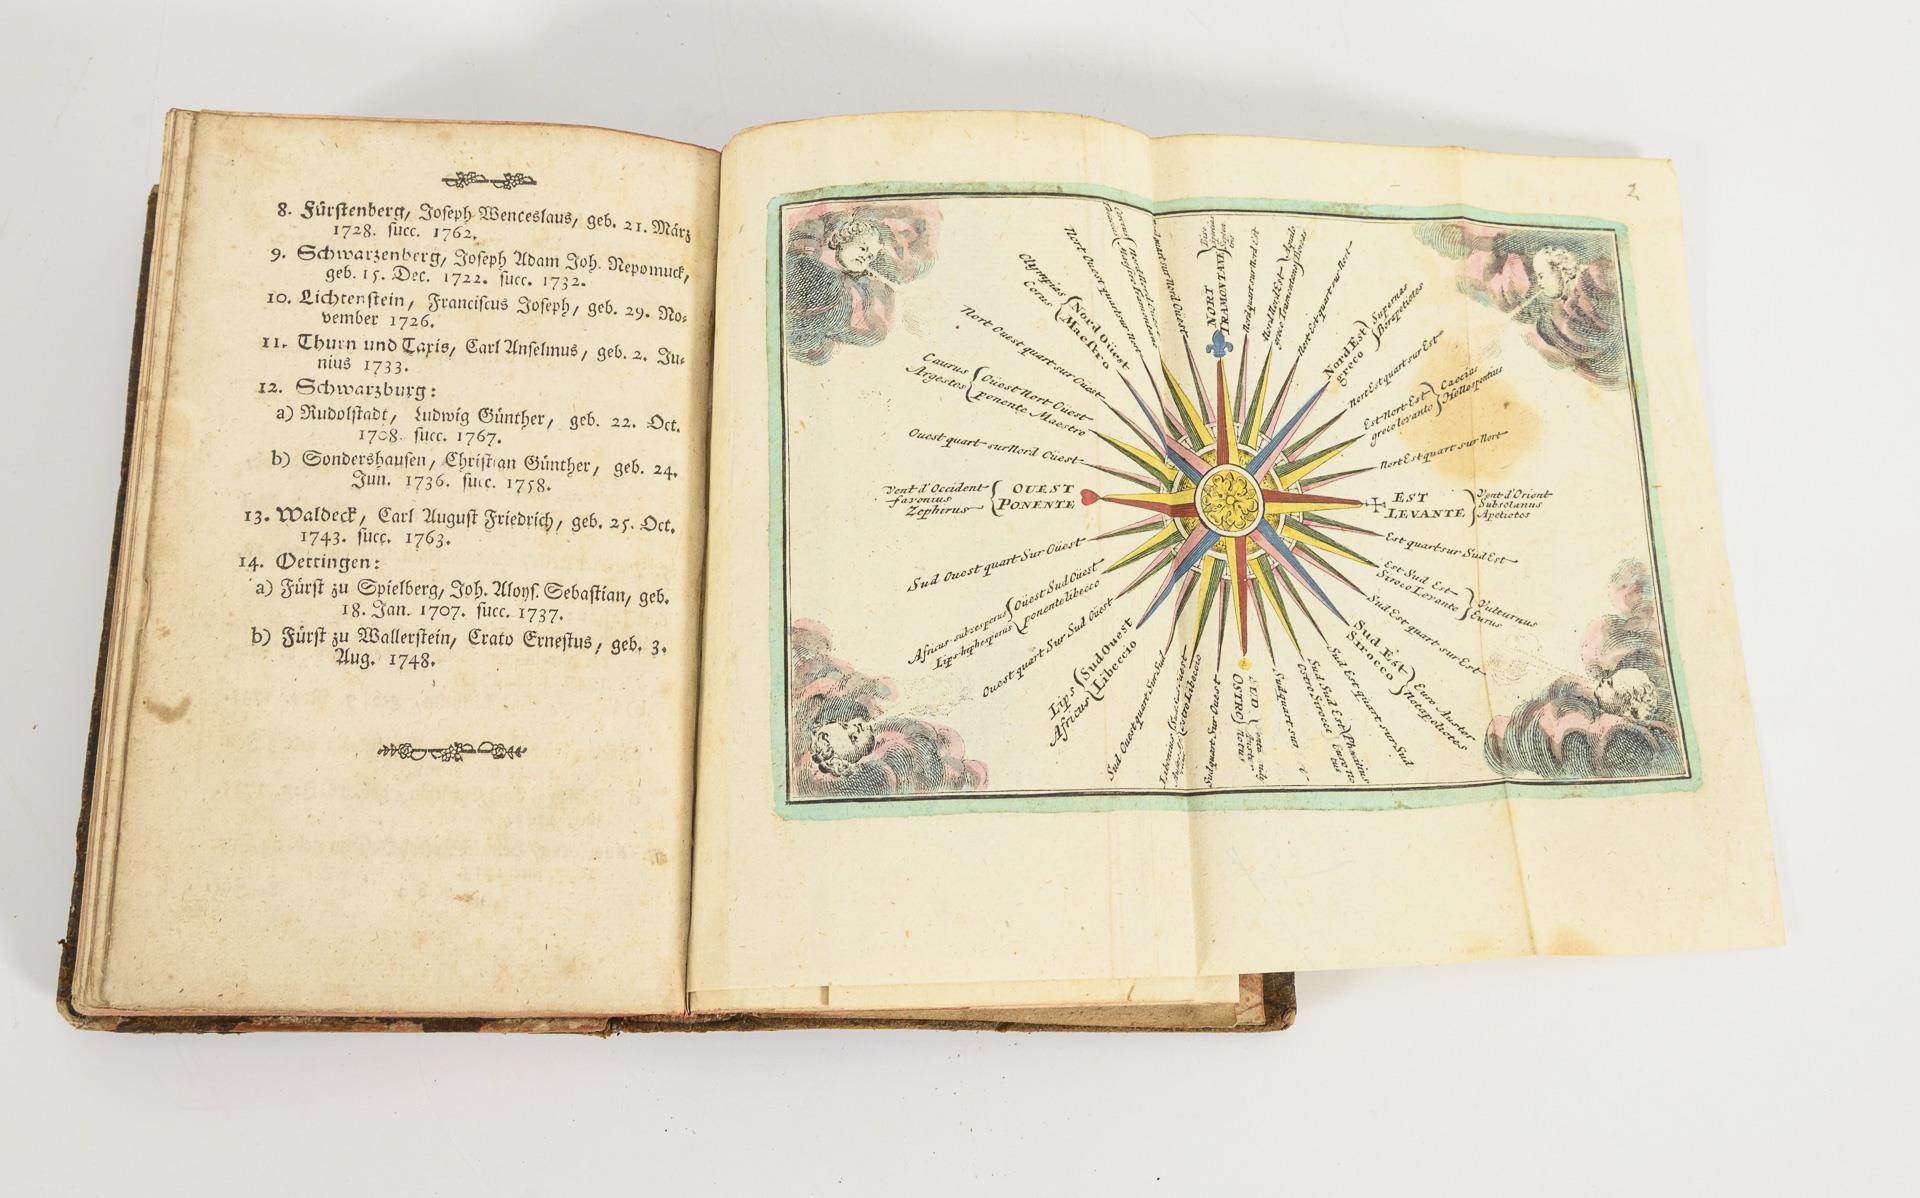 8. Fürstenberg, Joseph Wenceslaus, geb. 21. März
1728. succ. 1762.
9. Schwarzenberg, Joseph Adam Joh. Nepomuck,
geb. 15. Dec. 1722. succ. 1732.
10. Lichtenstein, Franciscus Joseph, geb. 29. No-
vember 1726.
11. Thurn und Taxis, Carl Anselmus, geb. 2. Ju-
nius 1733.
12. Schwarzburg:
a) Rudolstadt, Ludwig Günther, geb. 22. Oct.
1708. succ. 1767.
b) Sondershausen, Christian Günther, geb. 24.
Jun. 1736. succ. 1758.
13. Waldeck, Carl August Friedrich, geb. 25. Oct.
1743. succ. 1763.
14. Oettingen:
a) Fürst zu Spielberg, Joh. Aloys. Sebastian, geb.
18. Jan. 1707. succ. 1737.
b) Fürst zu Wallerstein, Crato Ernestus, geb. 3.
Aug. 1748.
2
NORT
TRAMONTANE
Nord quart sur Nord Est
Nord Nord Est
greco Tramontana
Aquilo
Boreas
Nort Est quart sur Nort
Nord Est
greco
Supernas
Borapeliotes
Nort Est quart sur Est
Est-Nort-Est
greco levante
Caecias
Hellespontius
Nort Est quart sur Nort
EST
LEVANTE
Vent d'Orient
Subsolanus
Apeliotes
Est quart sur Sud Est
Est Sud Est
Siroco Levante
Vulturnus
Eurus
Sud Est quart sur Est
Sud Est
Sirocco
Euro Auster
Notapeliotes
Sud Est quart sur Sud
Sud Sud Est
Ostro Sirocco
Phoenitius
Euro no
tus
Sud quart sur
SUD
OSTRO
notus
Sud quart Sur Ouest
Ostro Libeccio
Sud Ouest quart Sur Sud
Sud Ouest
Libeccio
Lips
Africus
Ouest quart Sur Sud Ouest
Oüest Sud Oüest
ponente libecco
Africus subvesperus
Sud Ouest quart Sur Oüest
OUEST
PONENTE
Vent d'Occident
favonius
Zephirus
Ouest quart sur Nord Oüest
Oüest Nort Oüest
ponente Maestro
Caurus
Argestes
Nort Ouest quart sur Ouest
Nord Oüest
Maestro
Olympias
Corus
Nort Ouest quart sur Nort